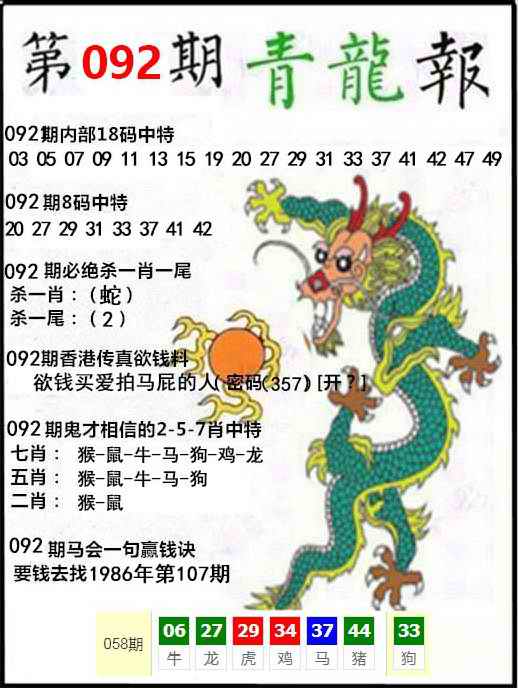 第092期青龍報
092期内部18码中特
03 05 07 09 11 13 15 19 20 27 29 31 33 37 41 42 47 49
092期8码中特
20 27 29 31 33 37 41 42
092期必绝杀一肖一尾
杀一肖：（蛇）
杀一尾：（2）
092期香港传真欲钱料
欲钱买爱拍马屁的人(密码(357)[开？]
092期鬼才相信的2-5-7肖中特
七肖： 猴-鼠-牛-马-狗-鸡-龙
五肖： 猴-鼠-牛-马-狗
二肖： 猴-鼠
092期马会一句赢钱诀
要钱去找1986年第107期
058期 06 27 29 34 37 44 33
牛 龙 虎 鸡 马 猪 狗